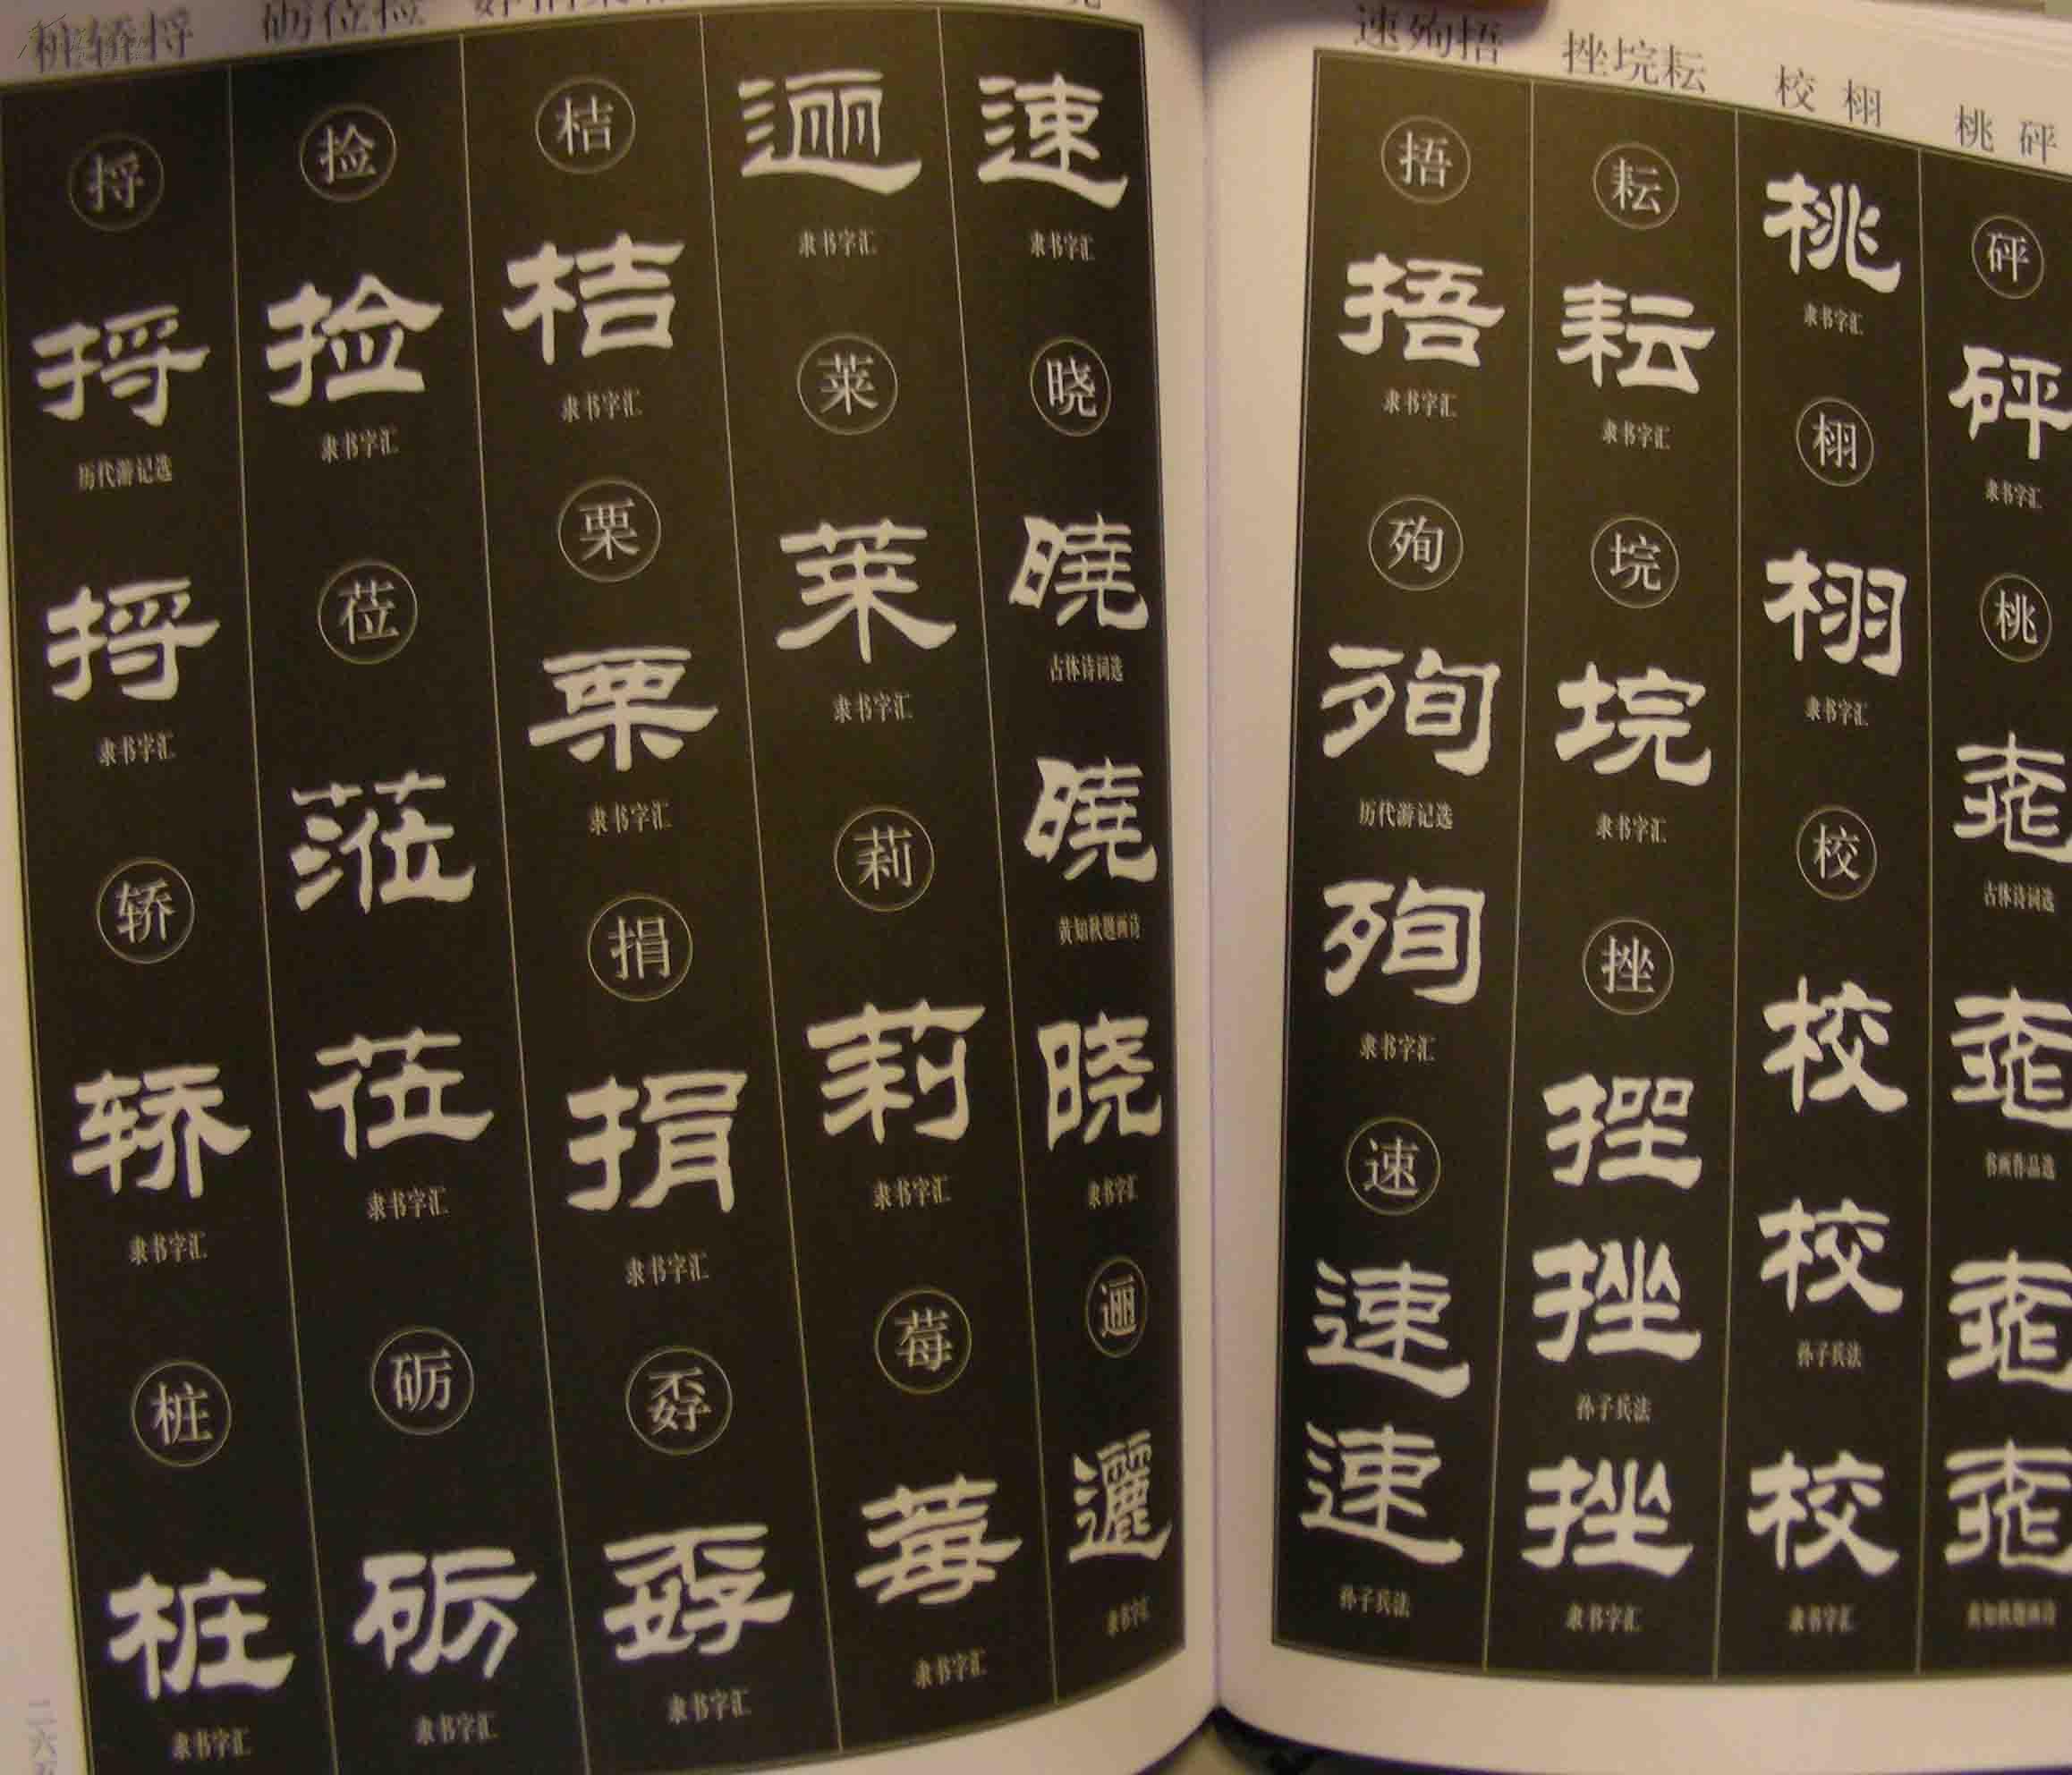 速殉捂 挫垸耘 校栩 桃砰
砰
砰
隶书字汇
桃
桃
古体诗词选
桃
书画作品选
桃
桃
黄知秋题画诗
桃
隶书字汇
栩
栩
隶书字汇
校
校
校
孙子兵法
校
隶书字汇
耘
耘
隶书字汇
垸
垸
隶书字汇
挫
挫
挫
孙子兵法
挫
隶书字汇
捂
捂
隶书字汇
殉
殉
历代游记选
殉
隶书字汇
速
速
速
孙子兵法
桩轿捋 砺莅捡
速
隶书字汇
晓
曉
古体诗词选
曉
黄知秋题画诗
晓
隶书字汇
逦
邐
隶书字汇
逦
隶书字汇
莱
莱
隶书字汇
莉
莉
隶书字汇
莓
莓
隶书字汇
桔
桔
隶书字汇
栗
栗
隶书字汇
捐
捐
隶书字汇
孬
孬
隶书字汇
捡
捡
隶书字汇
莅
蒞
莅
隶书字汇
砺
砺
隶书字汇
捋
捋
历代游记选
捋
隶书字汇
轿
轿
隶书字汇
桩
桩
隶书字汇
二六五